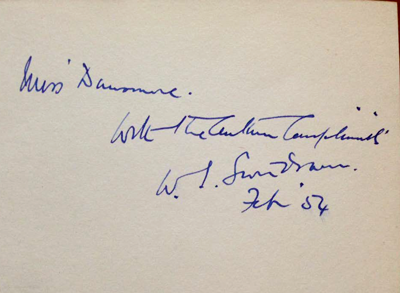 Miss Dunsmore.
With the Authors Compliments
W. S.
Feb '54